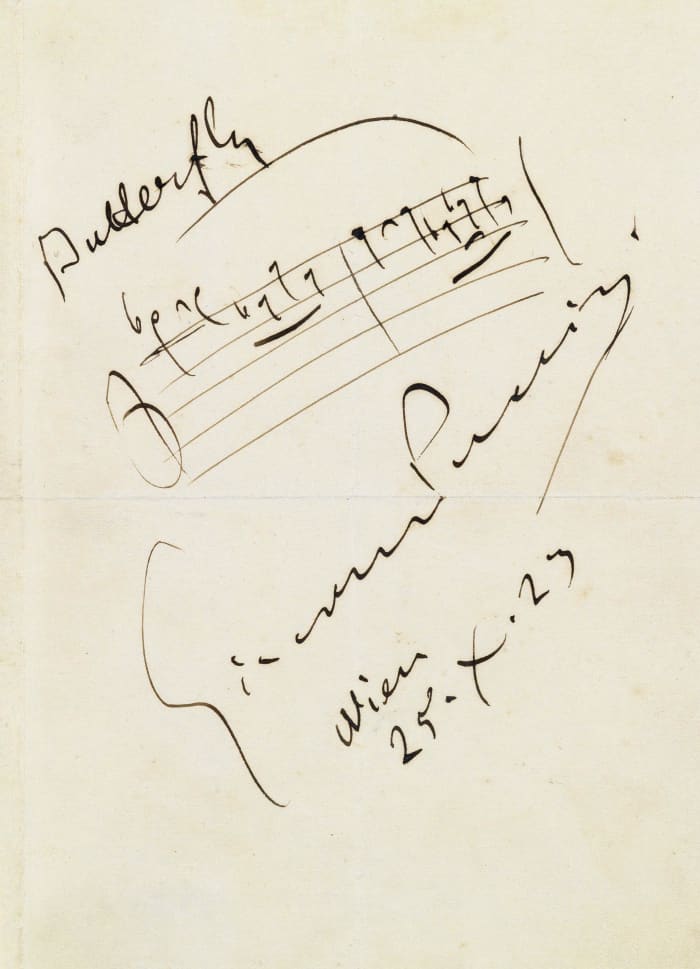 Butterfly
Giacomo Puccini
Wien
25.X.23